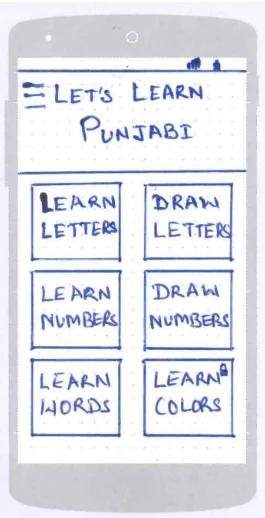 LET'S LEARN
PUNJABI
LEARN
LETTERS
DRAW
LETTERS
LEARN
NUMBERS
DRAW
NUMBERS
LEARN
WORDS
LEARN
COLORS